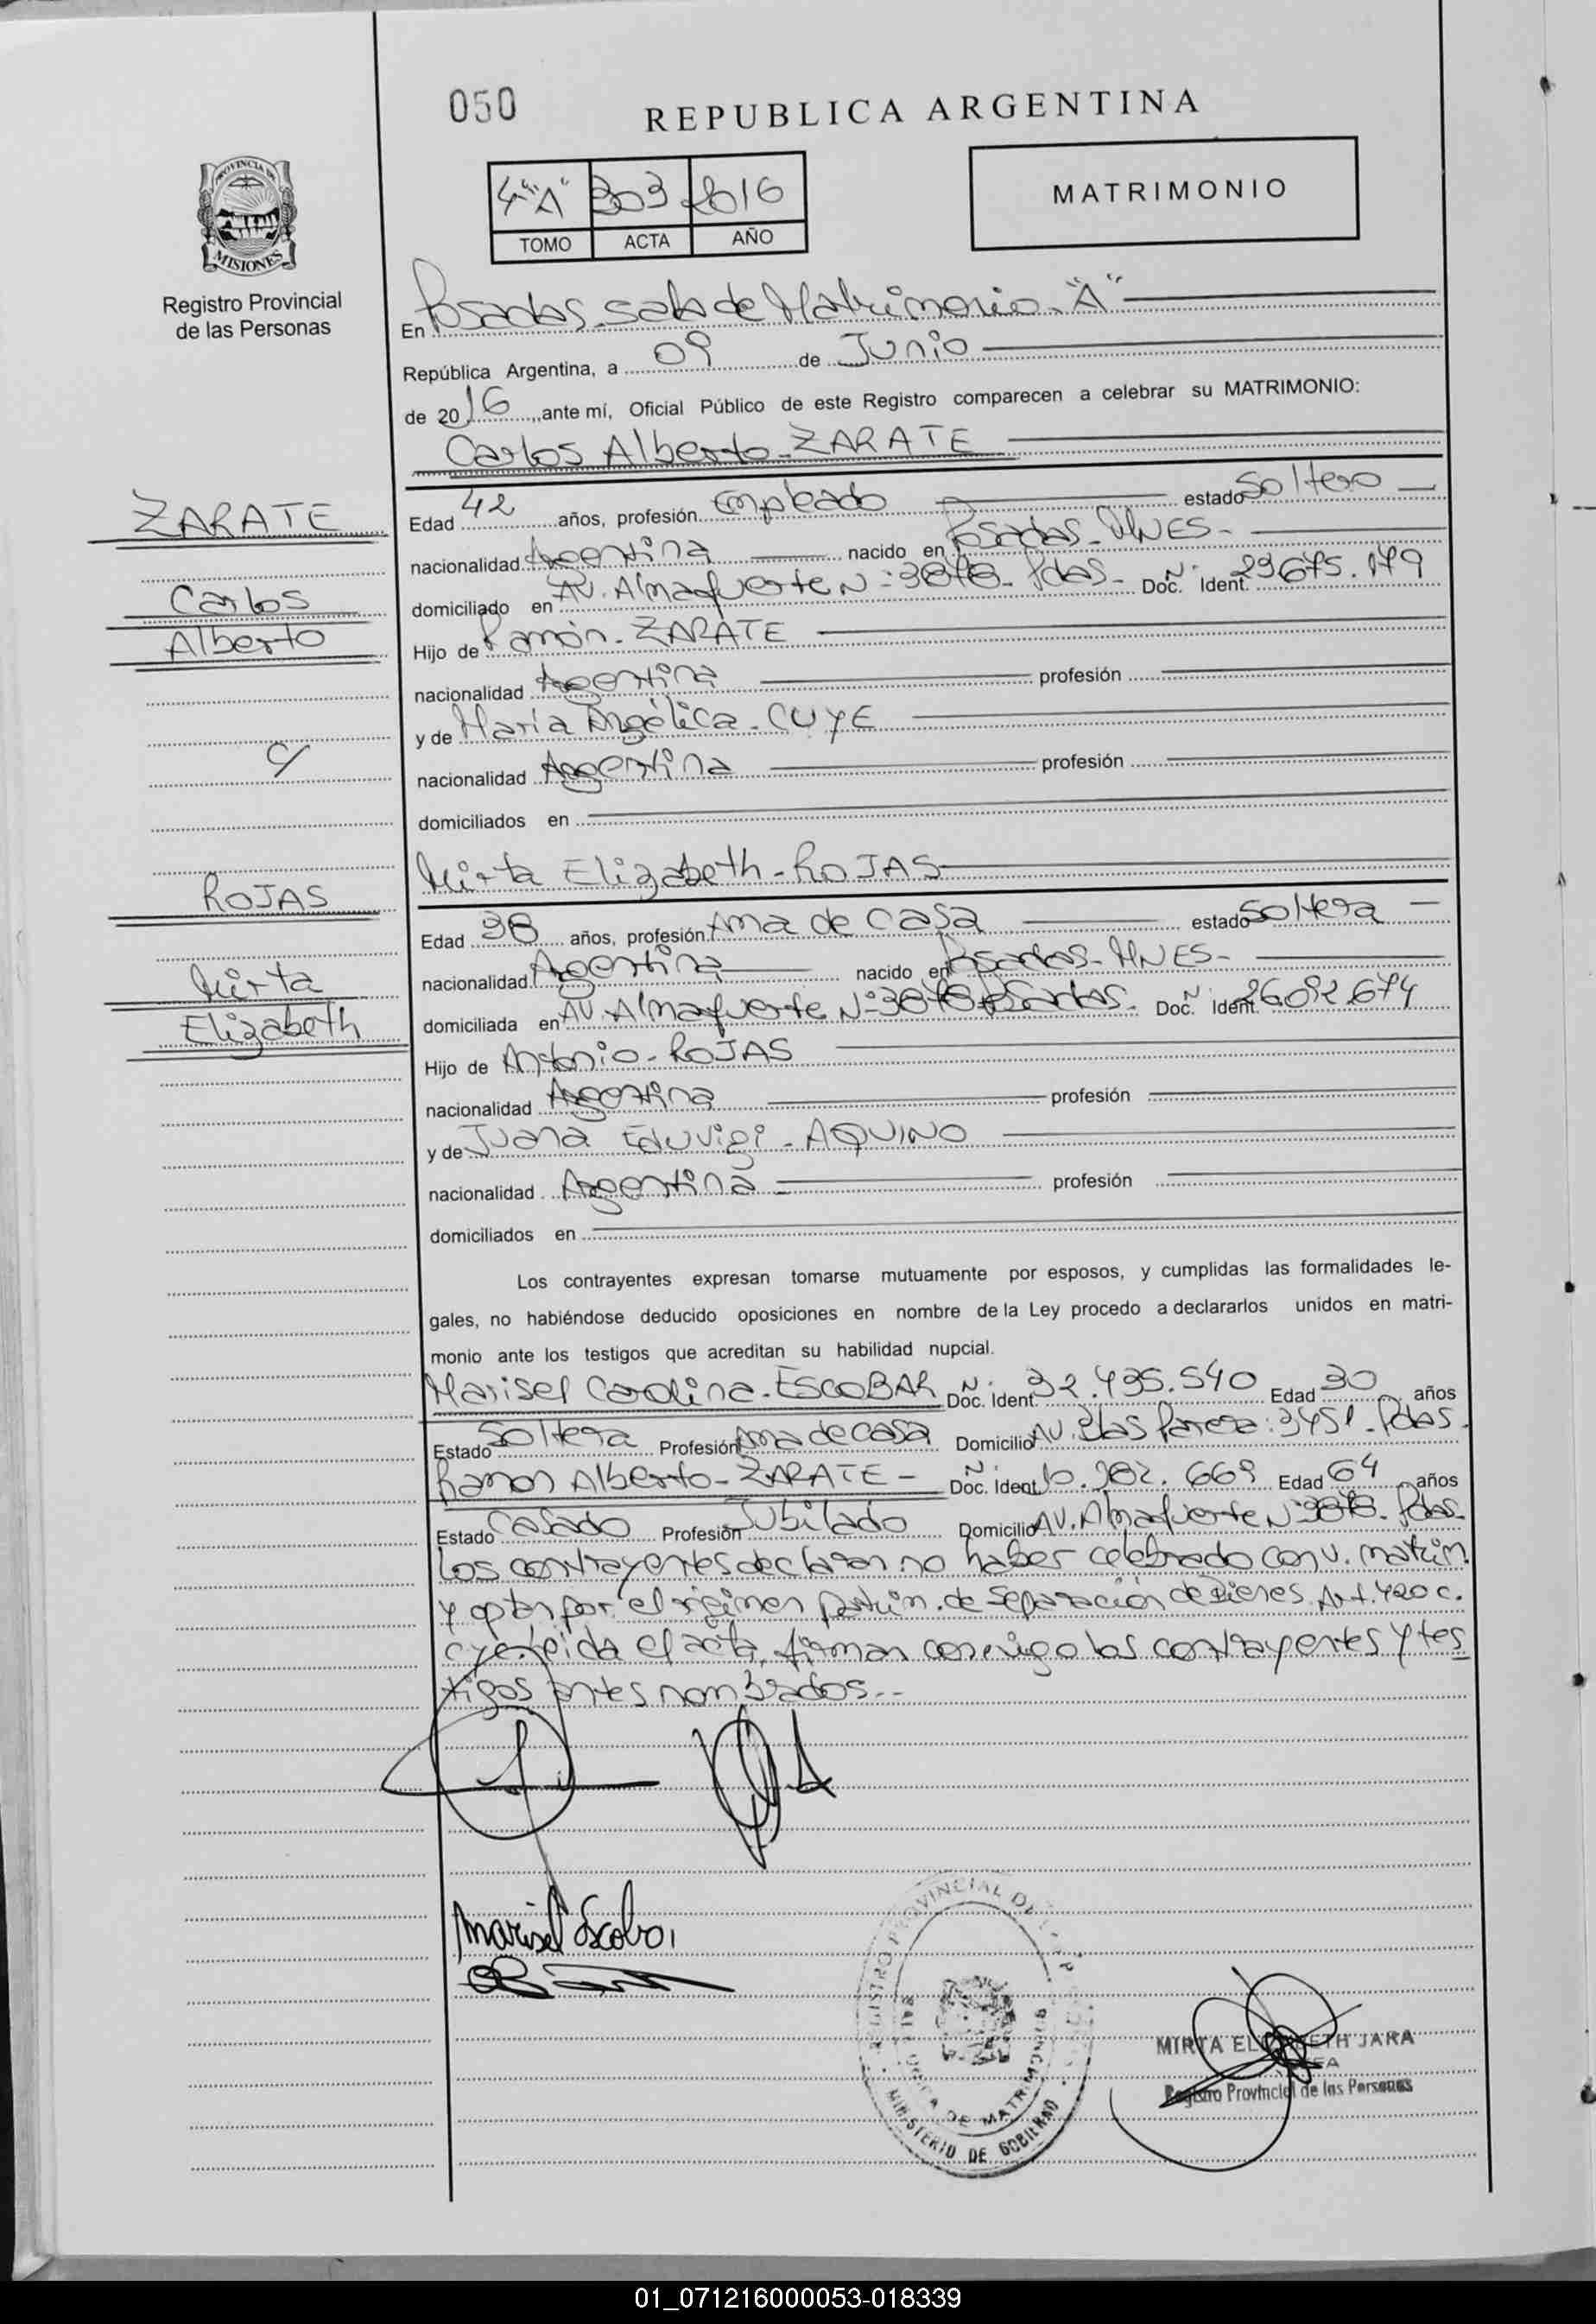 050
REPUBLICA ARGENTINA
4"A" 303 2016
TOMO ACTA AÑO
MATRIMONIO
PROVINCIA DE
MISIONES
Registro Provincial
de las Personas
En Posadas sala de Matrimonio "A"
República Argentina, a 09 de Junio
de 2016, ante mí, Oficial Público de este Registro comparecen a celebrar su MATRIMONIO:
Carlos Alberto - ZARATE
ZARATE
Carlos
Alberto
c/
ROJAS
Mirta
Elizabeth
Edad 42 años, profesión Empleado estado Soltero
nacionalidad Argentina nacido en Posadas - MNES -
domiciliado en AV. Almafuerte N° 3878 - Pdas - Doc. N° Ident. 23675.179
Hijo de Ramón - ZARATE
nacionalidad Argentina profesión
y de María Angélica - CUYE
nacionalidad Argentina profesión
domiciliados en
Mirta Elizabeth - ROJAS
Edad 38 años, profesión Ama de casa estado Soltera
nacionalidad Argentina nacido en Posadas - MNES -
domiciliada en AV. Almafuerte N° 3878 Posadas. Doc. N° Ident. 26.092.674
Hijo de Antonio - ROJAS
nacionalidad Argentina profesión
y de Juana Eduvigi - AQUINO
nacionalidad Argentina profesión
domiciliados en
Los contrayentes expresan tomarse mutuamente por esposos, y cumplidas las formalidades le-
gales, no habiéndose deducido oposiciones en nombre de la Ley procedo a declararlos unidos en matri-
monio ante los testigos que acreditan su habilidad nupcial.
Marisel Carolina - ESCOBAR Doc. N° Ident. 32.435.540 Edad 30 años
Estado Soltera Profesión Ama de casa Domicilio AV. Blas Parera: 3451 - Pdas.
Ramon Alberto - ZARATE - Doc. N° Ident. 10.382.669 Edad 64 años
Estado Casado Profesión Jubilado Domicilio AV. Almafuerte N° 3878 - Pdas.
Los contrayentes declaran no haber celebrado conv. matrim.
y optan por el régimen patrim. de separación de Bienes Art. 420 c.
c y leída el acta, firman conmigo los contrayentes y tes
tigos antes nombrados.-
Marisel Escobar
REGISTRO PROVINCIAL DE LAS PERSONAS
MINISTERIO DE GOBIERNO
DE MATRIMONIOS
MIRTA ELIZABETH JARA
Registro Provincial de las Personas
01_071216000053-018339